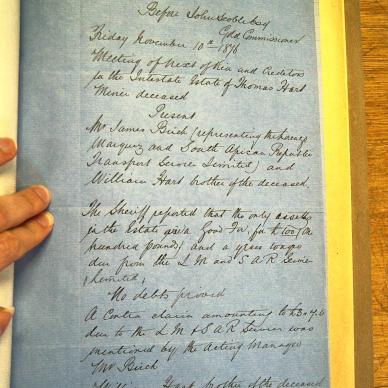 Before John Scoble Esq
Gold Commissioner
Friday November 10th 1876
Meeting of Next of Kin and Creditors
in the Intestate Estate of Thomas Hart
Miner deceased
Present
Mr James Birch (representing the
Marquez and South African Republic
Transport Service Limited) and
William Hart brother of the deceased.
The Sheriff reported that the only assets
in the Estate were a Good For, for £100 (One
hundred pounds) and a years wages
due from the L M and S A R Service
Limited,
No debts proved
A Contra claim amounting to
due to the L M & S A R Service was
mentioned by the Acting Manager
Mr Birch
Hart brother of the deceased